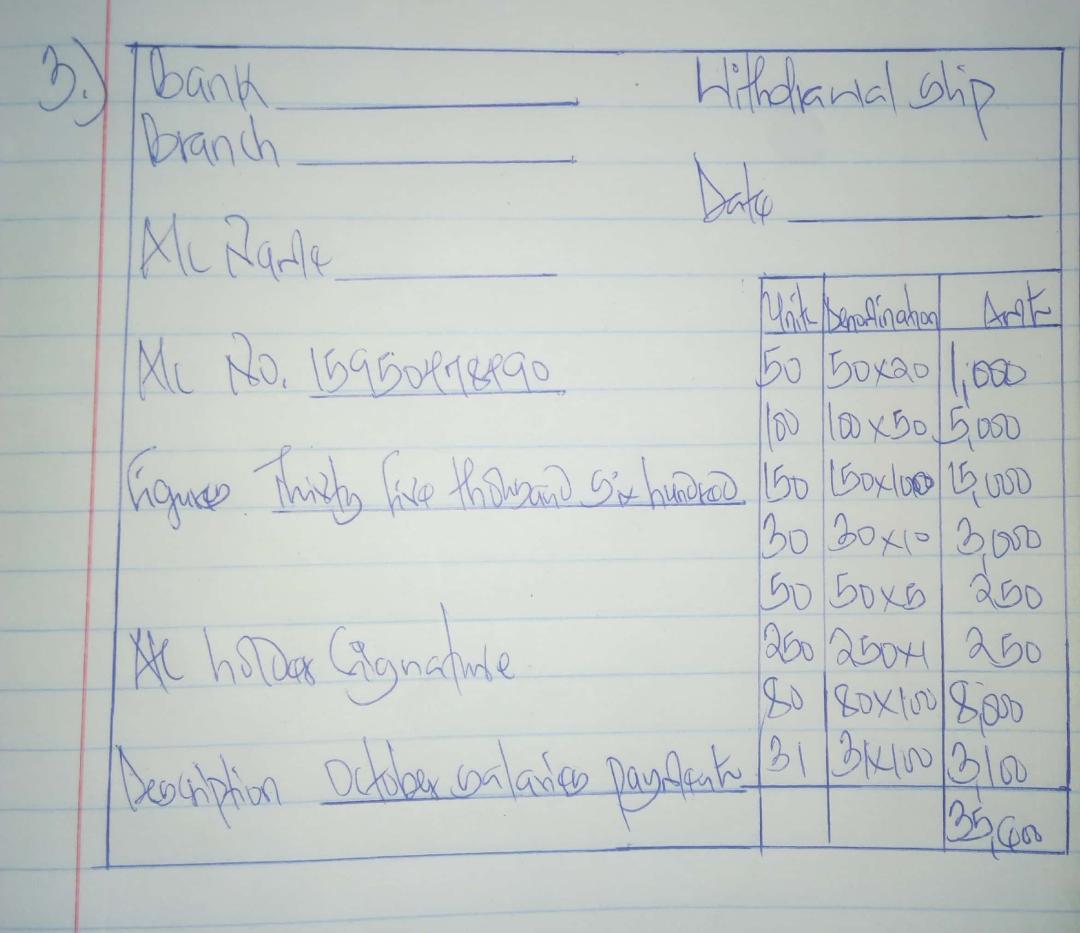 3.) Bank __________ Withdrawal slip
Branch __________
Date __________
A/c Name __________
Unit Denomination Amt
A/c No. 50 50x20 1,000
100 100x50 5,000
Figures Thirty five thousand six hundred 150 150x100 15,000
30 30x10 3,000
50 50x5 250
A/c holder Signature 250 250x1 250
80 80x100 8,000
Description October salaries payment 31 31x100 3,100
35,600